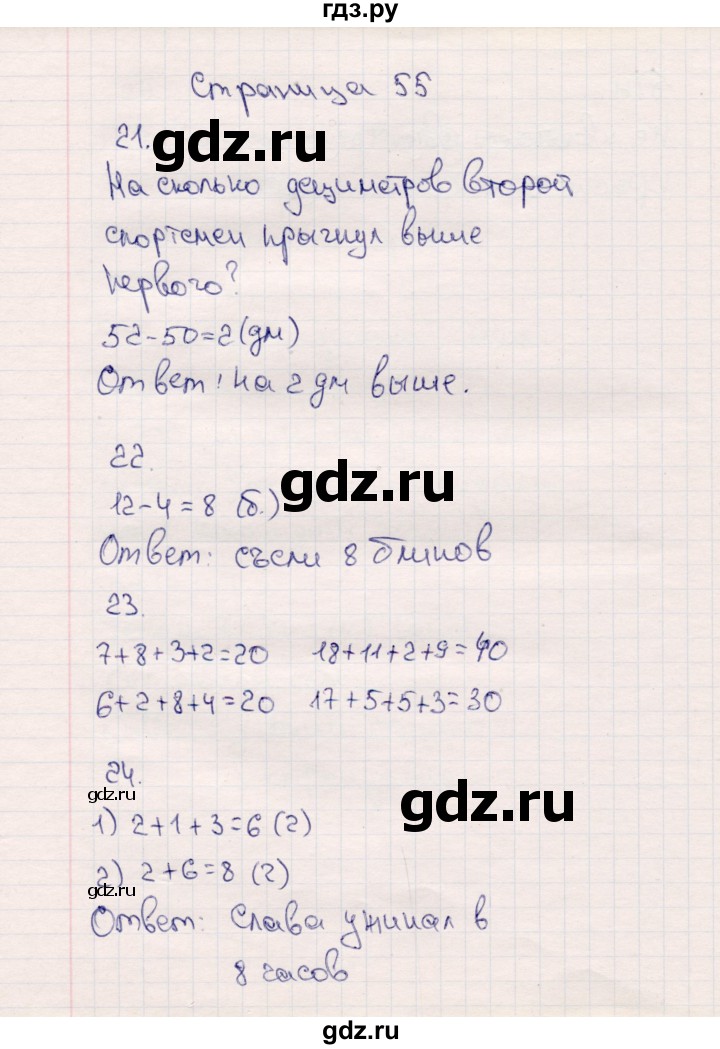 гдз.ру
Страница 55
21.
gdz.ru
На сколько дециметров второй
спортсмен прыгнул выше
первого?
52-50=2(дм)
Ответ: на 2 дм выше.
22.
gdz.ru
12-4=8 (б.)
Ответ: съели 8 блинов
23.
7+8+3+2=20 18+11+2+9=40
6+2+8+4=20 17+5+5+3=30
24.
gdz.ru
gdz.ru
1) 2+1+3=6 (ч)
2) 2+6=8 (ч)
gdz.ru
Ответ: Слава ужинал в
8 часов
gdz.ru